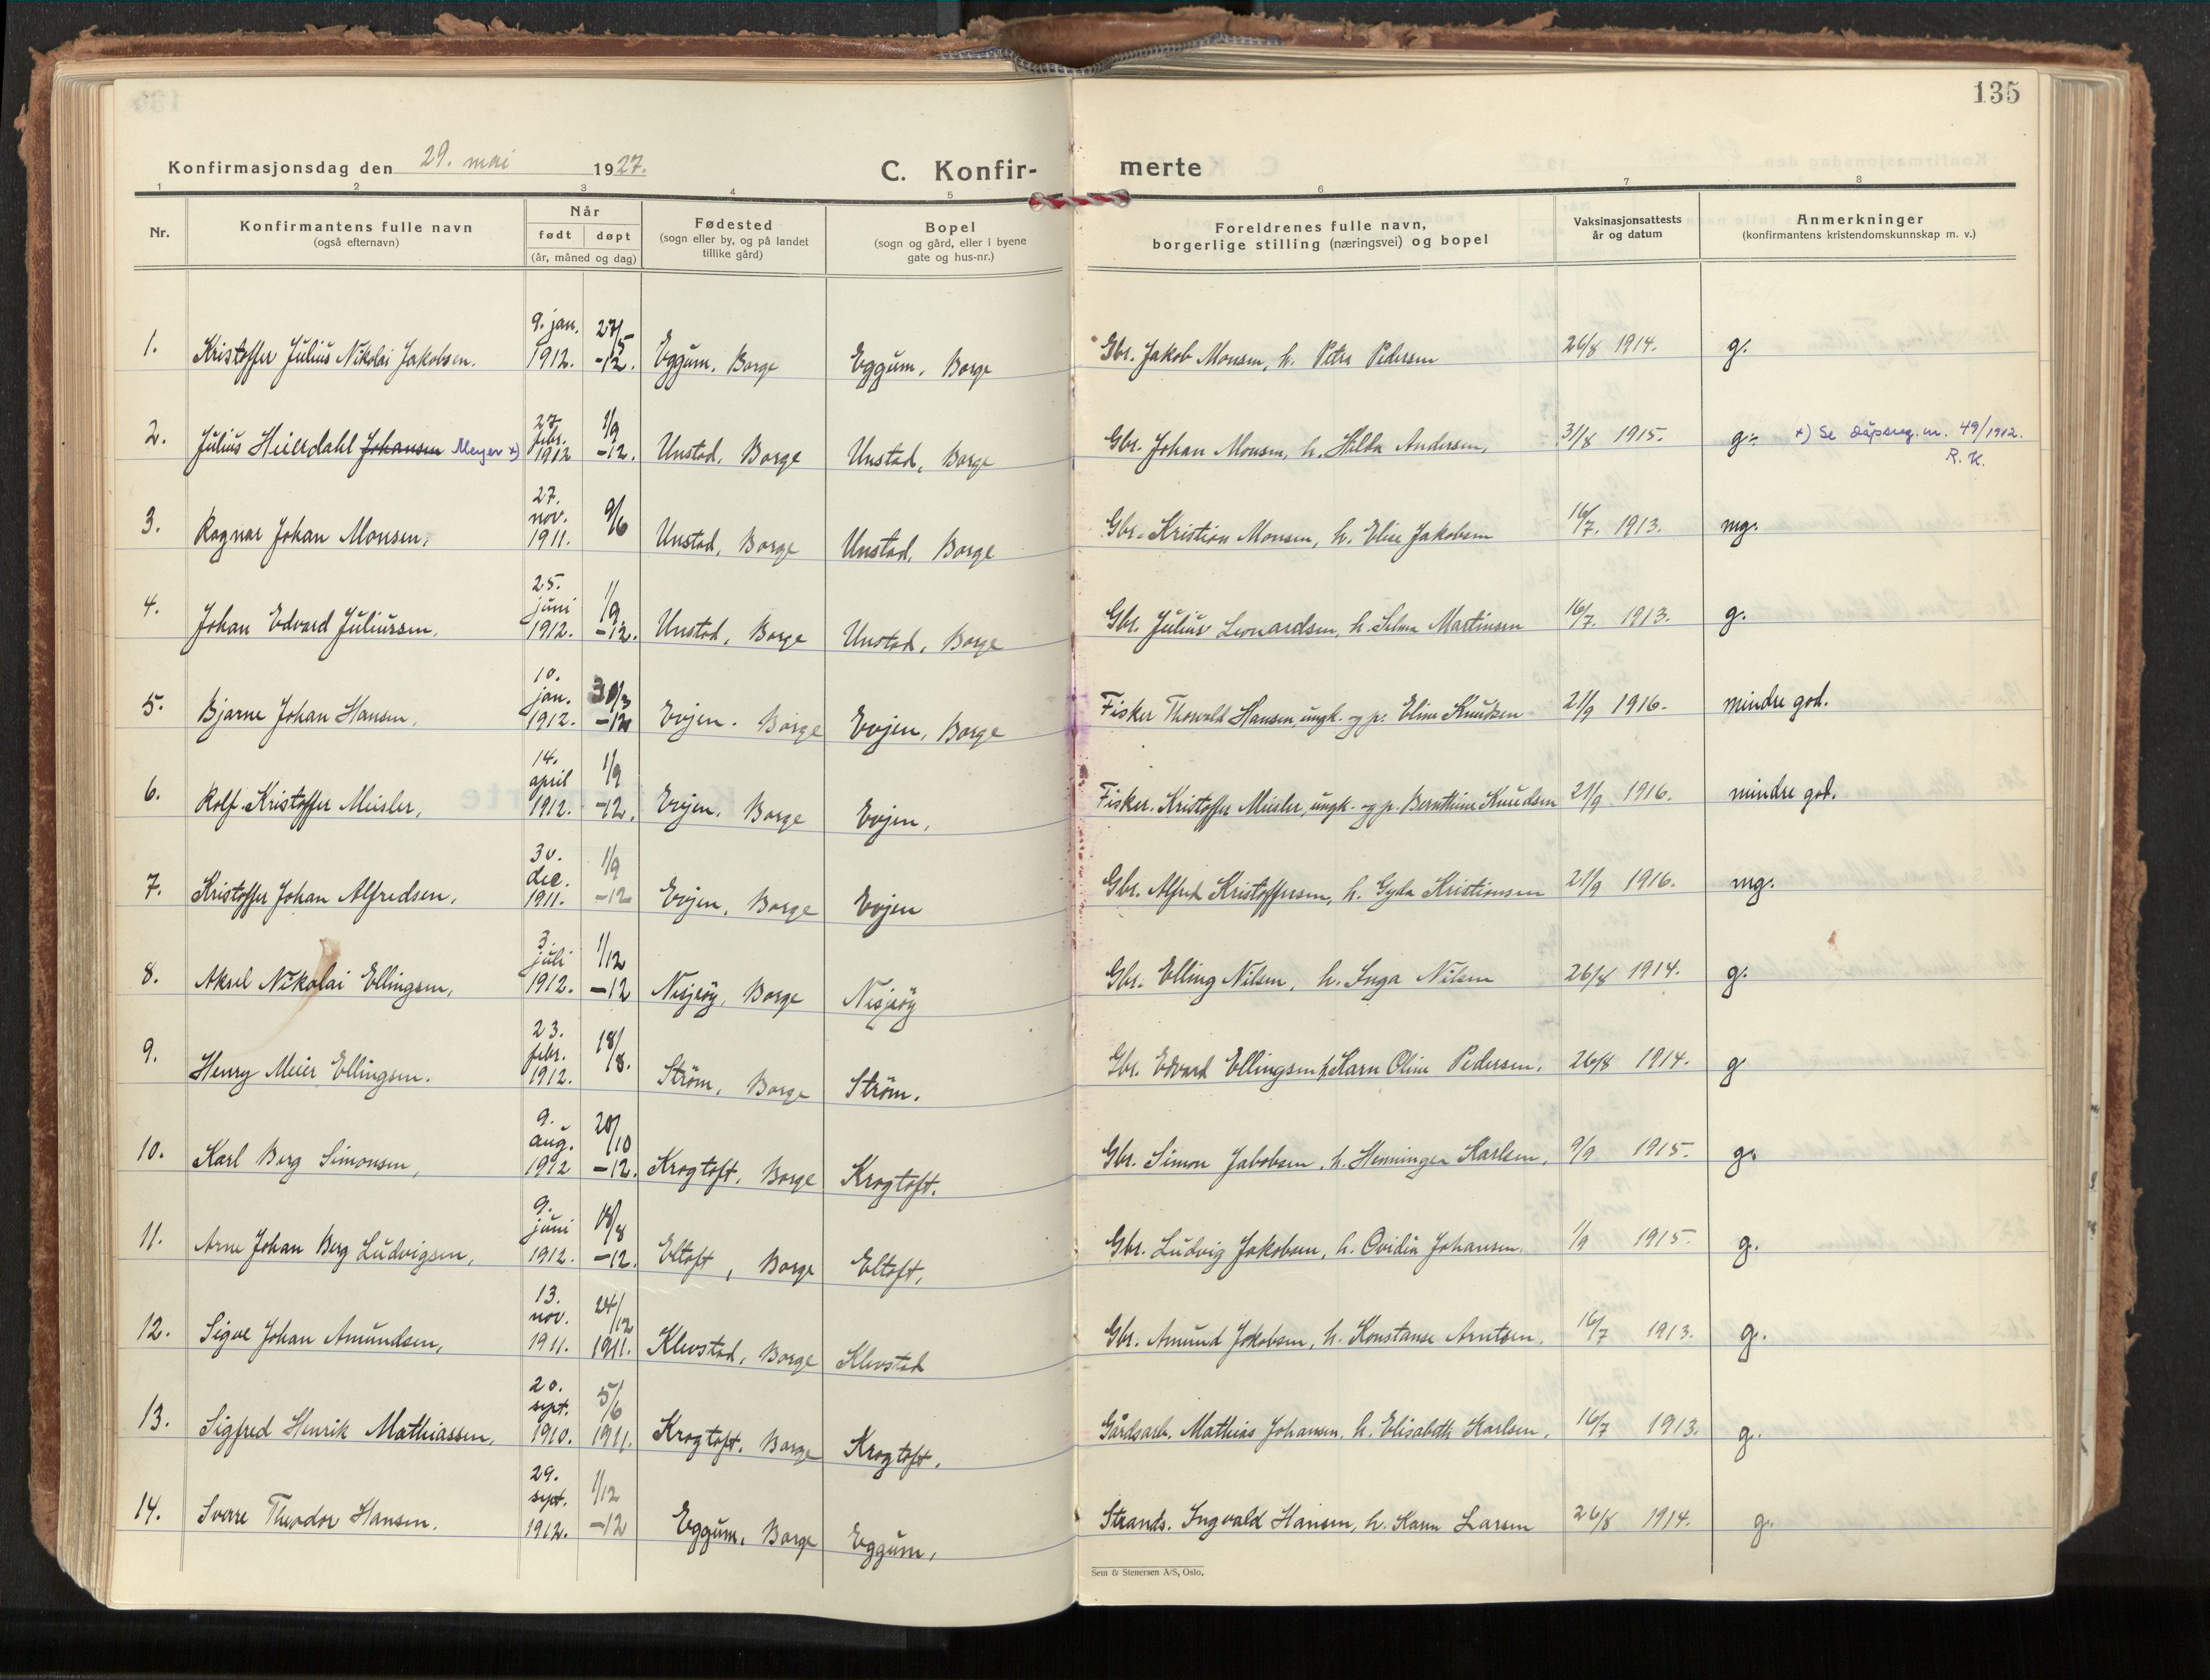 135
Konfirmasjonsdag den 29. mai 1927. C. Konfir- merte
1 2 3 4 5 6 7 8
Nr.
Konfirmantens fulle navn
(også efternavn)
Når
født døpt
(år, måned og dag)
Fødested
(sogn eller by, og på landet
tillike gård)
Bopel
(sogn og gård, eller i byene
gate og hus-nr.)
Foreldrenes fulle navn,
borgerlige stilling (næringsvei) og bopel
Vaksinasjonsattests
år og datum
Anmerkninger
(konfirmantens kristendomskunnskap m. v.)
1. Kristoffer Julius Nikolai Jakobsen. 9. jan. 1912. 27/5 -12. Eggum, Borge Eggum, Borge Gbr. Jakob Monsen, h. Petra Pedersen 26/8 1914. g.
2. Julius Heilrdahl Johansen Meyer x) 27. febr. 1912 1/9 -12. Unstad, Borge Unstad, Borge Gbr. Johan Monsen, h. Hilda Andersen, 31/8 1915. g. x) Se dåpsreg. nr. 49/1912.
R. K.
3. Ragnar Johan Monsen, 27. nov. 1911. 9/6 Unstad, Borge Unstad, Borge Gbr. Kristian Monsen, h. Elise Jakobsen 16/7. 1913. mg.
4. Johan Edvard Juliussen, 25. juni 1912. 1/9 -12. Unstad, Borge Unstad, Borge Gbr. Julius Leonardsen, h. Selma Martinsen 16/7. 1913. g.
5. Bjarne Johan Hansen, 10. jan. 1912. -12 Evjen. Borge Evjen, Borge Fisker Thorvald Hansen, ungk. og p. Eline Knudsen 21/9 1916. mindre god.
6. Rolf Kristoffer Meisler, 14. april 1912. 1/9 -12. Evjen, Borge Evjen, Fisker. Kristoffer Meisler, ungk. og p. Bernthine Knudsen 21/9 1916. mindre god.
7. Kristoffer Johan Alfredsen, 30. dec. 1911. 1/9 -12 Evjen, Borge Evjen Gbr. Alfred Kristoffersen, h. Gyda Kristiansen 21/9 1916. mg.
8. Aksel Nikolai Ellingsen, 3. juli 1912. 1/12 -12 Nisjeöy, Borge Nisjeöy Gbr. Elling Nilsen, h. Inga Nilsen 26/8 1914. g.
9. Henry Meier Ellingsen. 23. febr. 1912. 18/8. Ström, Borge Ström. Gbr. Edvard Ellingsen h. Karn Oline Pedersen. 26/8 1914. g
10. Karl Berg Simonsen, 9. aug. 1912 20/10 -12. Krogtoft, Borge Krogtoft. Gbr. Simon Jakobsen, h. Henninger Karlsen, 9/9 1915. g.
11. Arne Johan Berg Ludvigsen, 9. juni 1912. 18/8 -12. Eltoft, Borge Eltoft, Gbr. Ludvig Jakobsen, h. Ovidia Johansen. 1/9 1915. g.
12. Sigve Johan Amundsen, 13. nov. 1911. 24/12 1911. Klevstad, Borge Klevstad Gbr. Amund Jakobsen, h. Konstanse Arntsen. 16/7 1913. g.
13. Sigfred Henrik Mathiassen, 20. sept. 1910. 5/6 1911. Krogtoft, Borge Krogtoft. Gårdsarb. Mathias Johansen, h. Elisabeth Karlsen. 16/7 1913. g.
14. Sverre Theodor Hansen. 29. sept. 1912. 1/12 -12 Eggum, Borge Eggum, Strands. Ingvald Hansen, h. Karen Larsen 26/8 1914. g.
Sem & Stenersen A/S, Oslo.